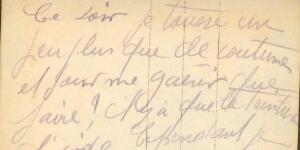 Ce soir je tousse un
peu plus que de coutume
et pour me guérir que
faire? Il n'y a que la teinture
d'iode Cependant je